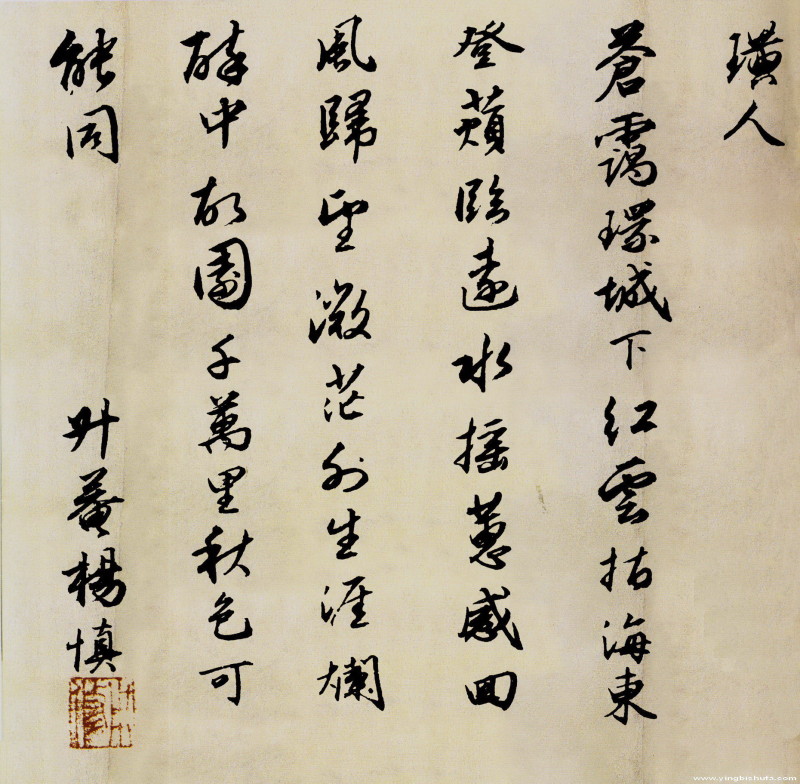 璜人
蒼靄環城下紅雲拈海東
登蘋臨遠水搖蕙感回
風歸望微茫外生涯爛
醉中故園千萬里秋色可
能同
升菴楊慎
www.yingbishufa.com